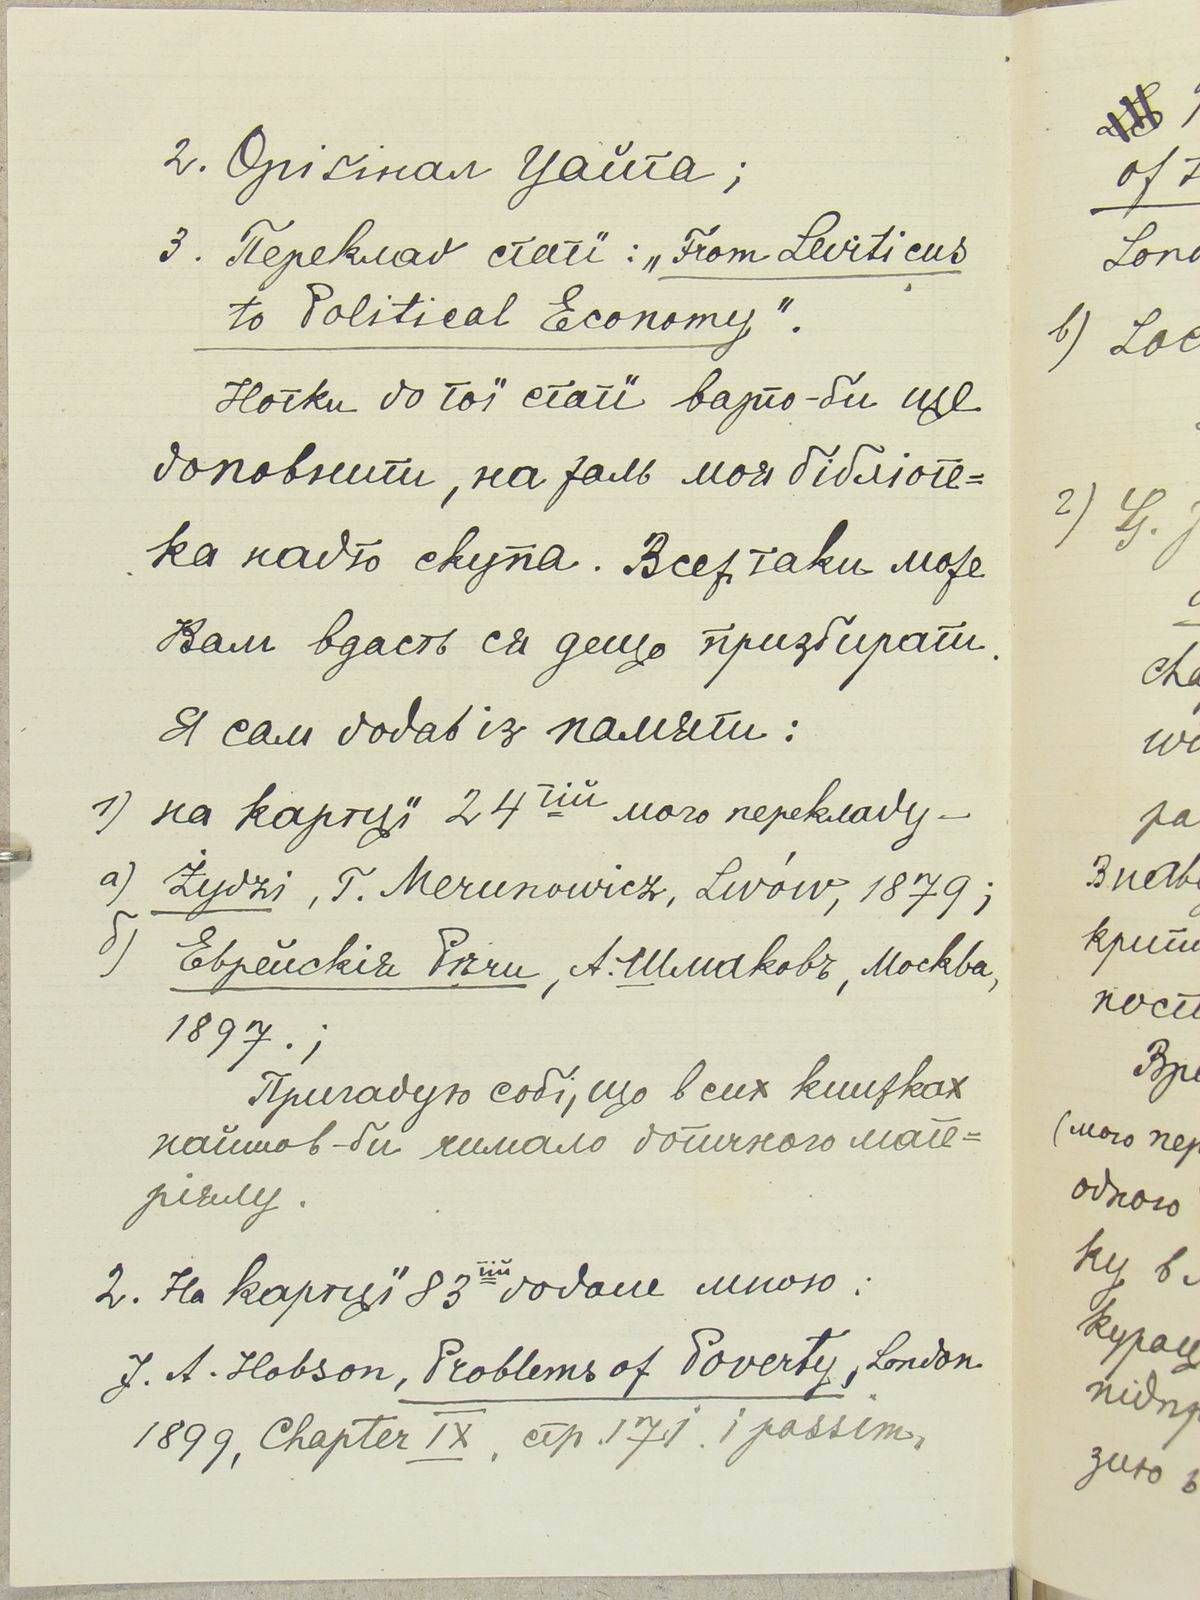 2. Оріґінал Уайта;
3. Переклад статї: „From Leviticus
to Political Economy".
Нотки до тої статї варто-би ще
доповнити, на жаль моя бібліоте=
ка надто скупа. Всеж таки може
Вам вдасть ся дещо призбирати.
Я сам додав із памяти:
1) на картцї 24тій мого перекладу —
а) Żydzi, T. Merunowicz, Lwów, 1879;
б) Еврейскія Рѣчи, А. Шмаковъ, Москва,
1897.;
Пригадую собі, що в сих книжках
найшов-би чимало дотичного мате=
ріялу.
2. На картцї 83тій додане мною:
J. A. Hobson, Problems of Poverty, London
1899, Chapter IX, стр. 171. i passim.
of
в) Loc
г) G. J
cha
ра
крити
(мого пер
одного
ку в